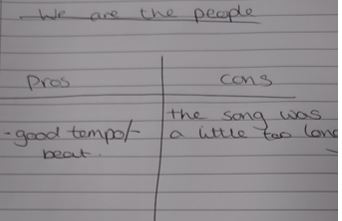 We are the people
Pros
cons
-good tempo/
beat.
the song was
a little too long